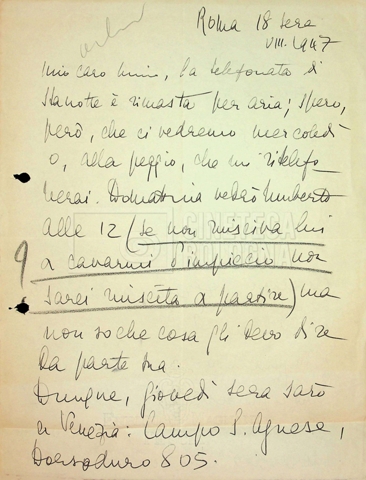 Roma 18 sera
VIII. 1947
mio caro Nino, la telefonata di
stanotte è rimasta per aria; spero,
però, che ci vedremo mercoledì
o, alla peggio, che mi ritelefo_
nerai. Domattina vedrò Umberto
alle 12 (se non riusciva lui
a cavarmi d'impiccio non
sarei riuscita a partire) ma
9
non so che cosa gli devo dire
da parte tua.
Dunque, giovedì sera sarò
a Venezia: Campo S. Agnese,
Dorsoduro 805.
CINETECA